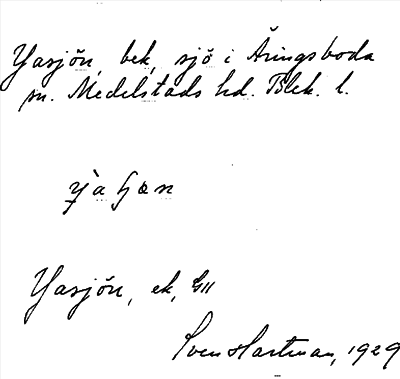 Yasjön, bek, sjö i Åringsboda
sn. Medelstads hd. Blek. l.
Yasjön, ek, GII
Sven Hartman, 1929